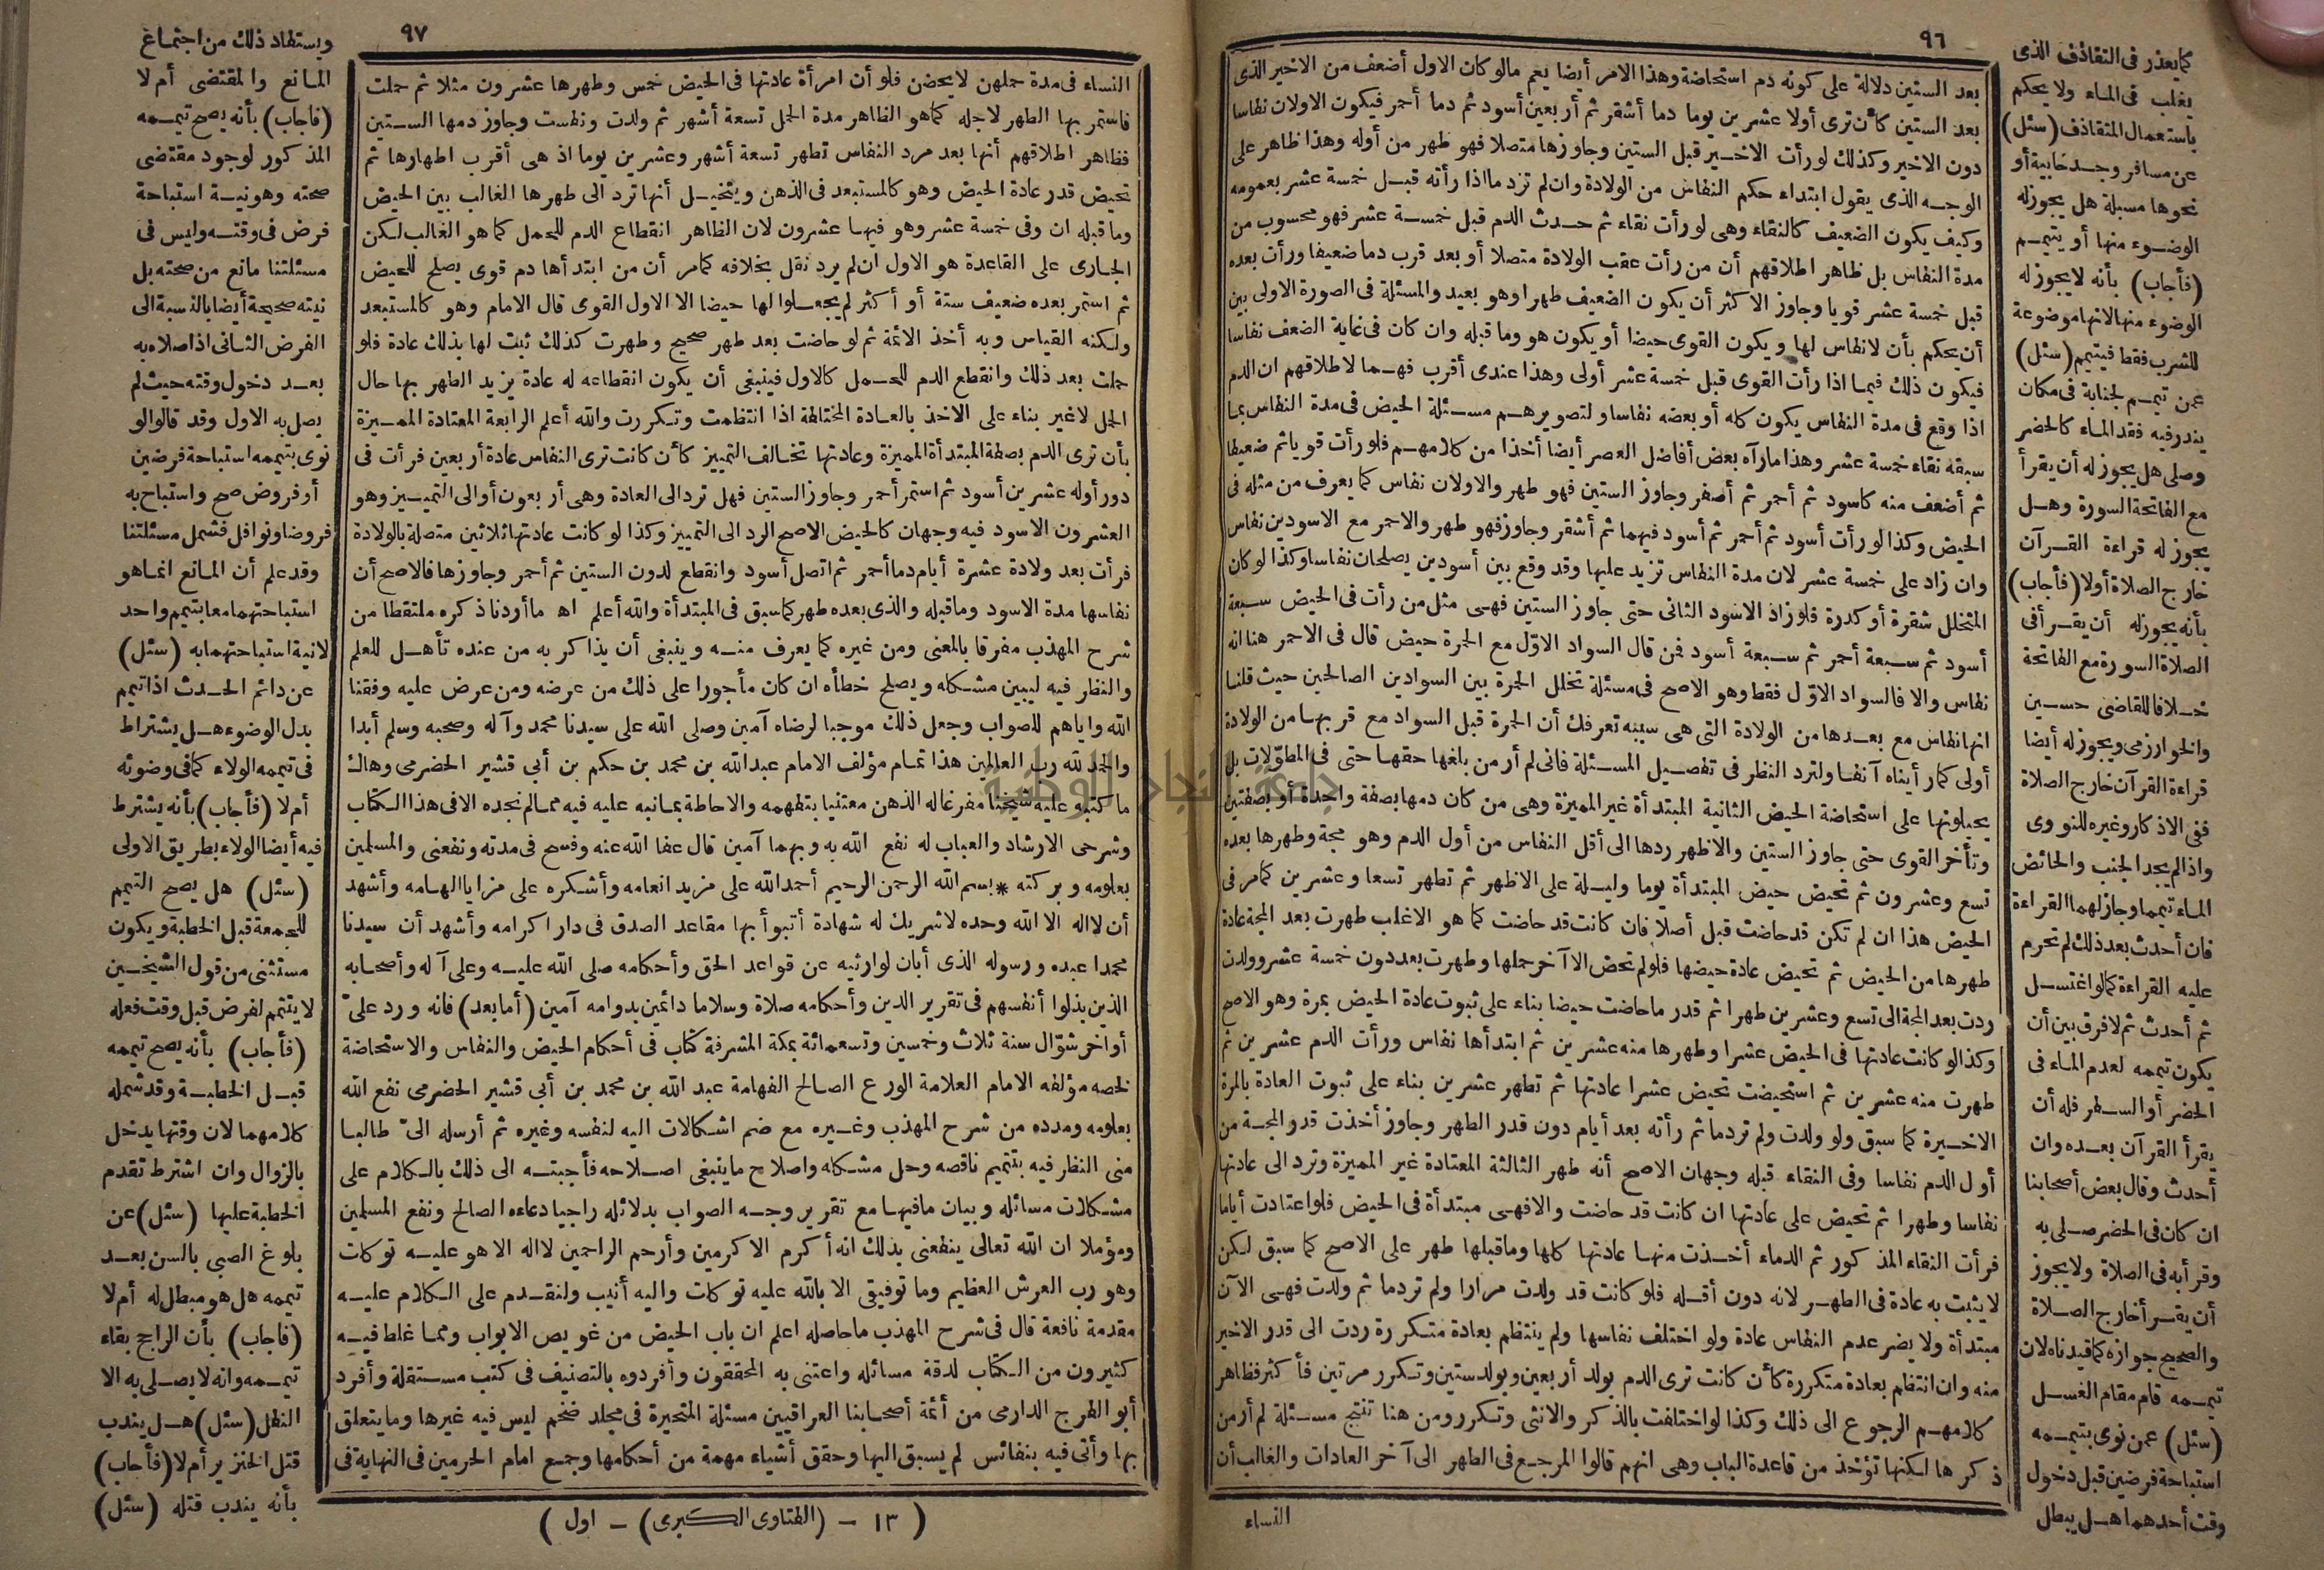 ٩٦
بعد الستين دلالة على كونه دم استحاضة وهذا الامر أيضا يعم مالو كان الاول أضعف من الاخير الذى
بعد الستين كأن ترى أولا عشرين يوما دما أشقر ثم أربعين أسود ثم دما أحمر فيكون الاولان نفاسا
دون الاخير وكذلك لو رأت الاخير قبل الستين وجاوزها متصلا فهو طهر من أوله وهذا ظاهر على
الوجه الذى يقول ابتداء حكم النفاس من الولادة وان لم تزد ما اذا رأته قبل خمسة عشر بعمومه
وكيف يكون الضعيف كالنقاء وهى لو رأت نقاء ثم حدث الدم قبل خمسة عشر فهو محسوب من
مدة النفاس بل ظاهر اطلاقهم أن من رأت عقب الولادة متصلا أو بعد قرب دما ضعيفا ورأت بعده
قبل خمسة عشر قويا وجاوز الاكثر أن يكون الضعيف طهرا وهو بعيد والمسئلة فى الصورة الاولى بين
أن يحكم بأن لانفاس لها ويكون القوى حيضا أو يكون هو وما قبله وان كان فى غاية الضعف نفاسا
فيكون ذلك فيما اذا رأت القوى قبل خمسة عشر أولى وهذا عندى أقرب فهما لاطلاقهم ان الدم
اذا وقع فى مدة النفاس يكون كله أو بعضه نفاسا ولتصويرهم مسئلة الحيض فى مدة النفاس بما
سبقه نقاء خمسة عشر وهذا ما رآه بعض أفاضل العصر أيضا أخذا من كلامهم فلو رأت قويا ثم ضعيفا
ثم أضعف منه كاسود ثم أحمر ثم أصفر وجاوز الستين فهو طهر والاولان نفاس كما يعرف من مثله فى
الحيض وكذا لو رأت أسود ثم أحمر ثم أسود فيهما ثم أشقر وجاوز فهو طهر والاحمر مع الاسودين نفاس
وان زاد على خمسة عشر لان مدة النفاس تزيد عليها وقد وقع بين أسودين يصلحان نفاسا وكذا لو كان
المتخلل شقرة أو كدرة فلو زاد الاسود الثانى حتى جاوز الستين فهى مثل من رأت فى الحيض سبعة
أسود ثم سبعة أحمر ثم سبعة أسود فمن قال السواد الاول مع الحمرة حيض قال فى الاحمر هنا انه
نفاس والا فالسواد الاول فقط وهو الاصح فى مسئلة تخلل الحمرة بين السوادين الصالحين حيث قلنا
انها نفاس مع بعدها من الولادة التى هى سببه تعرفك أن الحمرة قبل السواد مع قربها من الولادة
أولى كما رأيناه آنفا ولترد النظر فى تفصيل المسئلة فانى لم أر من بلغها حقها حتى فى المطولات بل
يحيلونها على استحاضة الحيض الثانية المبتدأة غير المميزة وهى من كان دمها بصفة واحدة أو بصفتين
وتأخر القوى حتى جاوز الستين والاظهر ردها الى أقل النفاس من أول الدم وهو مجة وطهرها بعده
تسع وعشرون ثم تحيض حيض المبتدأة يوما وليلة على الاظهر ثم تطهر تسعا وعشرين كما مر فى
الحيض هذا ان لم تكن قد حاضت قبل أصلا فان كانت قد حاضت كما هو الاغلب طهرت بعد المجة عادة
طهرها من الحيض ثم تحيض عادة حيضها فلو لم تحض الا آخر حملها وطهرت بعد دون خمسة عشر وولدت
ردت بعد المجة الى تسع وعشرين طهرا ثم قدر ما حاضت حيضا بناء على ثبوت عادة الحيض بمرة وهو الاصح
وكذا لو كانت عادتها فى الحيض عشرا وطهرها منه عشرين ثم ابتدأها نفاس ورأت الدم عشرين ثم
طهرت منه عشرين ثم استحيضت تحيض عشرا عادتها ثم تطهر عشرين بناء على ثبوت العادة بالمرة
الاخيرة كما سبق ولو ولدت ولم تر دما ثم رأته بعد أيام دون قدر الطهر وجاوز أخذت قدر المجة من
أول الدم نفاسا وفى النقاء قبله وجهان الاصح أنه طهر الثالثة المعتادة غير المميزة وترد الى عادتها
نفاسا وطهرا ثم تحيض على عادتها ان كانت قد حاضت والا فهى مبتدأة فى الحيض فلو اعتادت أياما
فرأت النقاء المذكور ثم الدماء أخذت منها عادتها كلها وما قبلها طهر على الاصح كما سبق لكن
لا يثبت به عادة فى الطهر لانه دون أقله فلو كانت قد ولدت مرارا ولم تر دما ثم ولدت فهى الآن
مبتدأة ولا يضر عدم النفاس عادة ولو اختلف نفاسها ولم ينتظم بعادة متكررة ردت الى قدر الاخير
منه وان انتظم بعادة متكررة كأن كانت ترى الدم بولد أربعين وبولد ستين وتكرر مرتين فأكثر فظاهر
كلامهم الرجوع الى ذلك وكذا لو اختلفت بالذكر والانثى وتكرر ومن هنا تنتج مسئلة لم أر من
ذكرها لكنها تؤخذ من قاعدة الباب وهى انهم قالوا المرجع فى الطهر الى آخر العادات والغالب أن
النساء
كما يعذر فى التقاذف الذى
يغلب فى الماء ولا يحكم
باستعمال المتقاذف (سئل)
عن مسافر وجد خابية أو
نحوها مسبلة هل يجوز له
الوضوء منها أو يتيمم
(فأجاب) بأنه لا يجوز له
الوضوء منها لانها موضوعة
للشرب فقط فيتيمم (سئل)
عمن تيمم لجنابة فى مكان
يندر فيه فقد الماء كالحضر
وصلى هل يجوز له أن يقرأ
مع الفاتحة السورة وهل
يجوز له قراءة القرآن
خارج الصلاة أولا (فأجاب)
بأنه يجوز له أن يقرأ فى
الصلاة السورة مع الفاتحة
خلافا للقاضى حسين
والخوارزمى ويجوز له أيضا
قراءة القرآن خارج الصلاة
ففى الاذكار وغيره للنووى
واذا لم يجد الجنب والحائض
الماء تيمما وجاز لهما القراءة
فان أحدث بعد ذلك لم تحرم
عليه القراءة كما لو اغتسل
ثم أحدث ثم لا فرق بين أن
يكون تيممه لعدم الماء فى
الحضر أو السفر فله أن
يقرأ القرآن بعده وان
أحدث وقال بعض أصحابنا
ان كان فى الحضر صلى به
وقرأ به فى الصلاة ولا يجوز
أن يقرأ خارج الصلاة
والصحيح جوازه كما قيدناه لان
تيممه قام مقام الغسل
(سئل) عمن نوى بتيممه
استباحة فرضين قبل دخول
وقت أحدهما هل يبطل
٩٧
النساء فى مدة حملهن لا يحضن فلو أن امرأة عادتها فى الحيض خمس وطهرها عشرون مثلا ثم حملت
فاستمر بها الطهر لاجله كما هو الظاهر مدة الحمل تسعة أشهر ثم ولدت ونفست وجاوز دمها الستين
فظاهر اطلاقهم أنها بعد مرد النفاس تطهر تسعة أشهر وعشرين يوما اذ هى أقرب اطهارها ثم
تحيض قدر عادة الحيض وهو كالمستبعد فى الذهن ويتخيل أنها ترد الى طهرها الغالب بين الحيض
وما قبله ان وفى خمسة عشر وهو فيها عشرون لان الظاهر انقطاع الدم للحمل كما هو الغالب لكن
الجارى على القاعدة هو الاول ان لم يرد نقل بخلافه كما مر أن من ابتدأها دم قوى يصلح للحيض
ثم استمر بعده ضعيف ستة أو أكثر لم يجعلوا لها حيضا الا الاول القوى قال الامام وهو كالمستبعد
ولكنه القياس وبه أخذ الائمة ثم لو حاضت بعد طهر صحيح وطهرت كذلك ثبت لها بذلك عادة فلو
حملت بعد ذلك وانقطع الدم للحمل كالاول فينبغى أن يكون انقطاعه له عادة يزيد الطهر بها حال
الحمل لا غير بناء على الاخذ بالعادة المختلفة اذا انتظمت وتكررت والله أعلم الرابعة المعتادة المميزة
بأن ترى الدم بصفة المبتدأة المميزة وعادتها تخالف التمييز كأن كانت ترى النفاس عادة أربعين فرأت فى
دور أوله عشرين أسود ثم استمر أحمر وجاوز الستين فهل ترد الى العادة وهى أربعون أو الى التمييز وهو
العشرون الاسود فيه وجهان كالحيض الاصح الرد الى التمييز وكذا لو كانت عادتها ثلاثين متصلة بالولادة
فرأت بعد ولادة عشرة أيام دما أحمر ثم اتصل أسود وانقطع لدون الستين ثم أحمر وجاوزها فالاصح أن
نفاسها مدة الاسود وما قبله والذى بعده طهر كما سبق فى المبتدأة والله أعلم اه ما أردنا ذكره ملتقطا من
شرح المهذب مفرقا بالمعنى ومن غيره كما يعرف منه وينبغى أن يذاكر به من عنده تأهل للعلم
والنظر فيه ليبين مشكله ويصلح خطأه ان كان مأجورا على ذلك من عرضه ومن عرض عليه وفقنا
الله واياهم للصواب وجعل ذلك موجبا لرضاه آمين وصلى الله على سيدنا محمد وآله وصحبه وسلم أبدا
والحمد لله رب العالمين هذا تمام مؤلف الامام عبدالله بن محمد بن حكم بن أبى قشير الحضرمى وهاك
ما كتبه عليه شيخنا مفرغا له الذهن معتنيا بتفهمه والاحاطة بما نبه عليه فيه مما لم نجده الا فى هذا الكتاب
وشرحى الارشاد والعباب له نفع الله به وبهما آمين قال عفا الله عنه وفسح فى مدته ونفعنى والمسلمين
بعلومه وبركته * بسم الله الرحمن الرحيم أحمد الله على مزيد انعامه وأشكره على مزايا الهامه وأشهد
أن لا اله الا الله وحده لا شريك له شهادة أتبوأ بها مقاعد الصدق فى دار اكرامه وأشهد أن سيدنا
محمدا عبده ورسوله الذى أبان لوارثيه عن قواعد الحق وأحكامه صلى الله عليه وعلى آله وأصحابه
الذين بذلوا أنفسهم فى تقرير الدين وأحكامه صلاة وسلاما دائمين بدوامه آمين (أما بعد) فانه ورد علىّ
أواخر شوّال سنة ثلاث وخمسين وتسعمائة بمكة المشرفة كتاب فى أحكام الحيض والنفاس والاستحاضة
لخصه مؤلفه الامام العلامة الورع الصالح الفهامة عبد الله بن محمد بن أبى قشير الحضرمى نفع الله
بعلومه ومدده من شرح المهذب وغيره مع ضم اشكالات اليه لنفسه وغيره ثم أرسله الىّ طالبا
منى النظر فيه بتتميم ناقصه وحل مشكله واصلاح ما ينبغى اصلاحه فأجبته الى ذلك بالكلام على
مشكلات مسائله وبيان ما فيها مع تقرير وجه الصواب بدلائله راجيا دعاءه الصالح ونفع المسلمين
ومؤملا ان الله تعالى ينفعنى بذلك انه أكرم الاكرمين وأرحم الراحمين لا اله الا هو عليه توكلت
وهو رب العرش العظيم وما توفيقى الا بالله عليه توكلت واليه أنيب ولنقدم على الكلام عليه
مقدمة نافعة قال فى شرح المهذب ما حاصله اعلم ان باب الحيض من عويص الابواب ومما غلط فيه
كثيرون من الكتاب لدقة مسائله واعتنى به المحققون وأفردوه بالتصنيف فى كتب مستقلة وأفرد
أبو الفرج الدارمى من أئمة أصحابنا العراقيين مسئلة المتحيرة فى مجلد ضخم ليس فيه غيرها وما يتعلق
بها وأتى فيه بنفائس لم يسبق اليها وحقق أشياء مهمة من أحكامها وجمع امام الحرمين فى النهاية فى
(١٣ - (الفتاوى الكبرى) - اول)
ويستفاد ذلك من اجتماع
المانع والمقتضى أم لا
(فاجاب) بأنه يصح تيممه
المذكور لوجود مقتضى
صحته وهو نية استباحة
فرض فى وقته وليس فى
مسئلتنا مانع من صحته بل
نيته صحيحة أيضا بالنسبة الى
الفرض الثانى اذا صلاه به
بعد دخول وقته حيث لم
يصل به الاول وقد قالوا لو
نوى بتيممه استباحة فرضين
أو فروض صح واستباح به
فروضا ونوافل فشمل مسئلتنا
وقد علم أن المانع انما هو
استباحتهما معا بتيمم واحد
لانية استباحتهما به (سئل)
عن دائم الحدث اذا تيمم
بدل الوضوء هل يشترط
فى تيممه الولاء كما فى وضوئه
أم لا (فأجاب) بأنه يشترط
فيه أيضا الولاء بطريق الاولى
(سئل) هل يصح التيمم
للجمعة قبل الخطبة ويكون
مستثنى من قول الشيخين
لا يتيمم لفرض قبل وقت فعله
(فأجاب) بأنه يصح تيممه
قبل الخطبة وقد شمله
كلامهما لان وقتها يدخل
بالزوال وان اشترط تقدم
الخطبة عليها (سئل) عن
بلوغ الصبى بالسن بعد
تيممه هل هو مبطل له أم لا
(فاجاب) بأن الراجح بقاء
تيممه وانه لا يصلى به الا
النفل (سئل) هل يندب
قتل الخنزير أم لا (فأجاب)
بأنه يندب قتله (سئل)
جامعة النجاح الوطنية